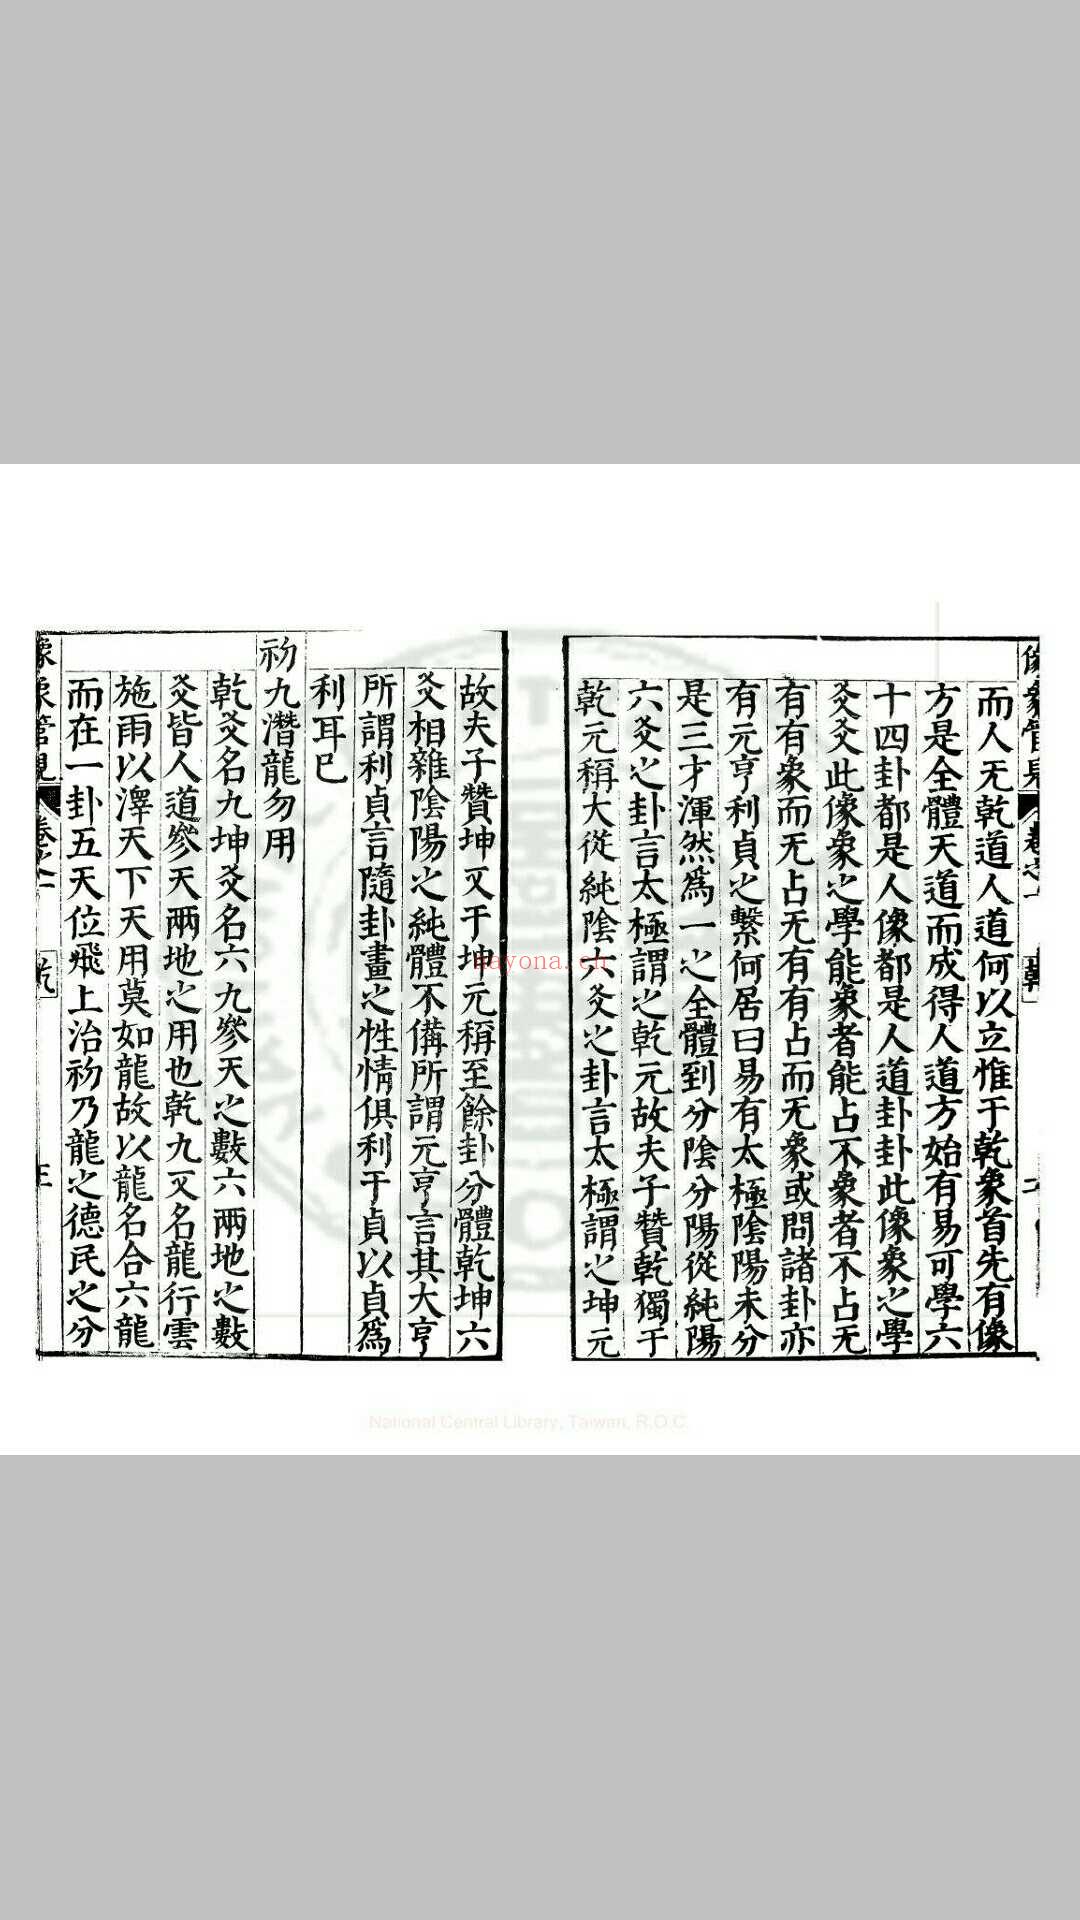 而人无乾道人道何以立惟于乾象首先有像
方是全體天道而成得人道方始有易可學六
十四卦都是人像都是人道卦卦此像象之學
爻爻此像象之學能象者能占不象者不占无
有有象而无占无有有占而无象或問諸卦亦
有元亨利貞之繫何居曰易有太極陰陽未分
是三才渾然爲一之全體到分陰分陽從純陽
六爻之卦言太極謂之乾元故夫子贊乾獨于
乾元稱大從純陰六爻之卦言太極謂之坤元
故夫子贊坤又于坤元稱至餘卦分體乾坤六
爻相雜陰陽之純體不備所謂元亨言其大亨
所謂利貞言隨卦畫之性情俱利于貞以貞爲
利耳巳
初九潛龍勿用
乾爻名九坤爻名六九參天之數六兩地之數
爻皆人道參天兩地之用也乾九又名龍行雲
施雨以澤天下天用莫如龍故以龍名合六龍
而在一卦五天位飛上治初乃龍之德民之分
像象管見 卷之一
nayona.cn
National Central Library, Taiwan, R.O.C.